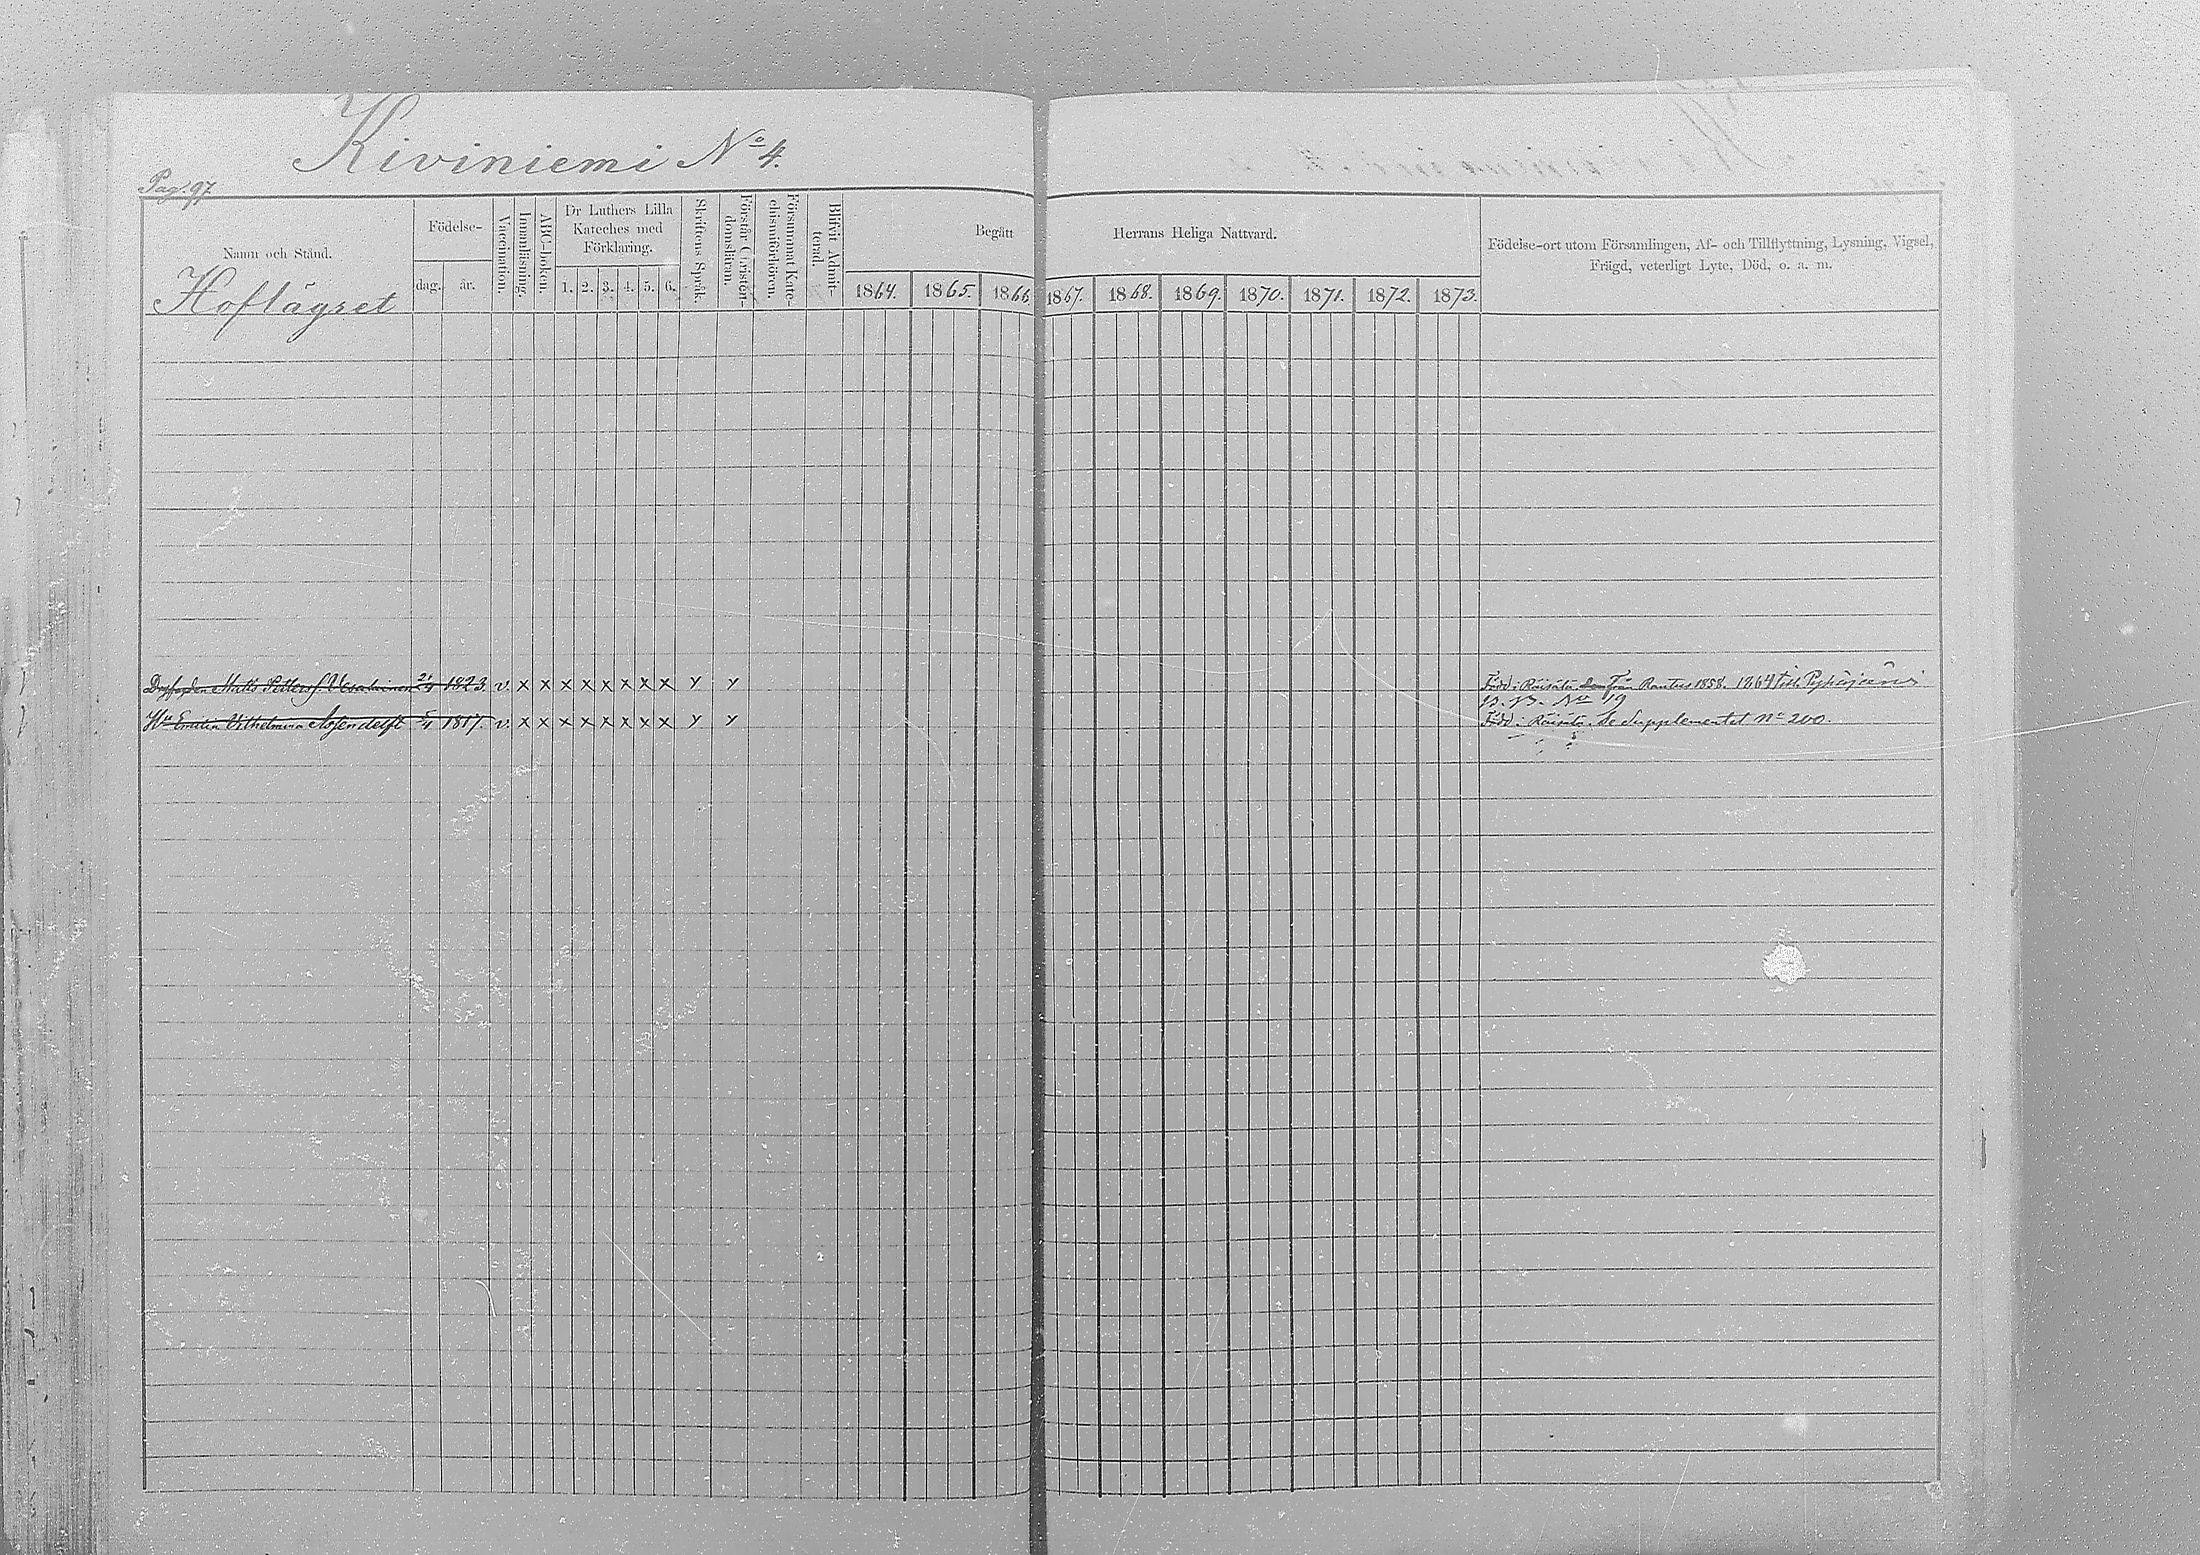 Kiviniemi No 4.
Pag. 97
Namn och Stånd.
Hoflägret
Födelse-
dag. år.
Vaccination.
Innanläsning.
ABC-boken.
Dr Luthers Lilla
Kateches med
Förklaring.
1. 2. 3. 4. 5. 6.
Skriftens Språk.
Förstår Cristen-
domsläran.
Försummat Kate-
chismiförhören.
Blifvit Admit-
terad.
Begått Herrans Heliga Nattvard.
1864. 1865. 1866. 1867. 1868. 1869. 1870. 1871. 1872. 1873.
Födelse-ort utom Församlingen, Af- och Tillflyttning, Lysning, Vigsel,
Frägd, veterligt Lyte, Död, o. a. m.
Matts Petters s. Vesalainen 1823. v. x x x x x x x x y y Född i Räisälä. från Rautus 1858. 1864 till Pyhäjärvi
p. B. No 19
Hu Emelia Vilhelmina 1817. v. x x x x x x x x y y Född i Räisälä. Se Supplementet No 200.